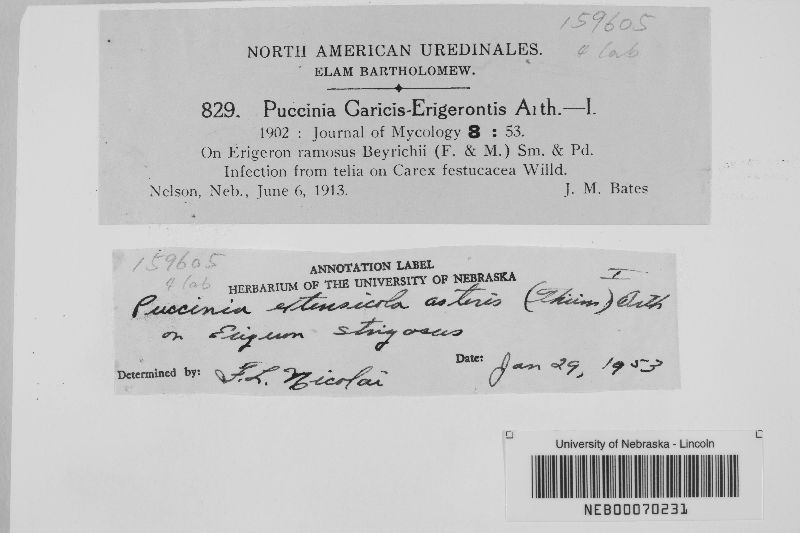 159605
4 lab
NORTH AMERICAN UREDINALES.
ELAM BARTHOLOMEW.
829. Puccinia Caricis-Erigerontis Arth.—I.
1902 : Journal of Mycology 8 : 53.
On Erigeron ramosus Beyrichii (F. & M.) Sm. & Pd.
Infection from telia on Carex festucacea Willd.
Nelson, Neb., June 6, 1913. J. M. Bates
159605
4 lab
ANNOTATION LABEL
HERBARIUM OF THE UNIVERSITY OF NEBRASKA
I
Puccinia extensicola asteris (Thüm) Arth
on Erigeron strigosus
Determined by: F. L. Nicolai Date: Jan 29, 1953
University of Nebraska - Lincoln
NEB00070231